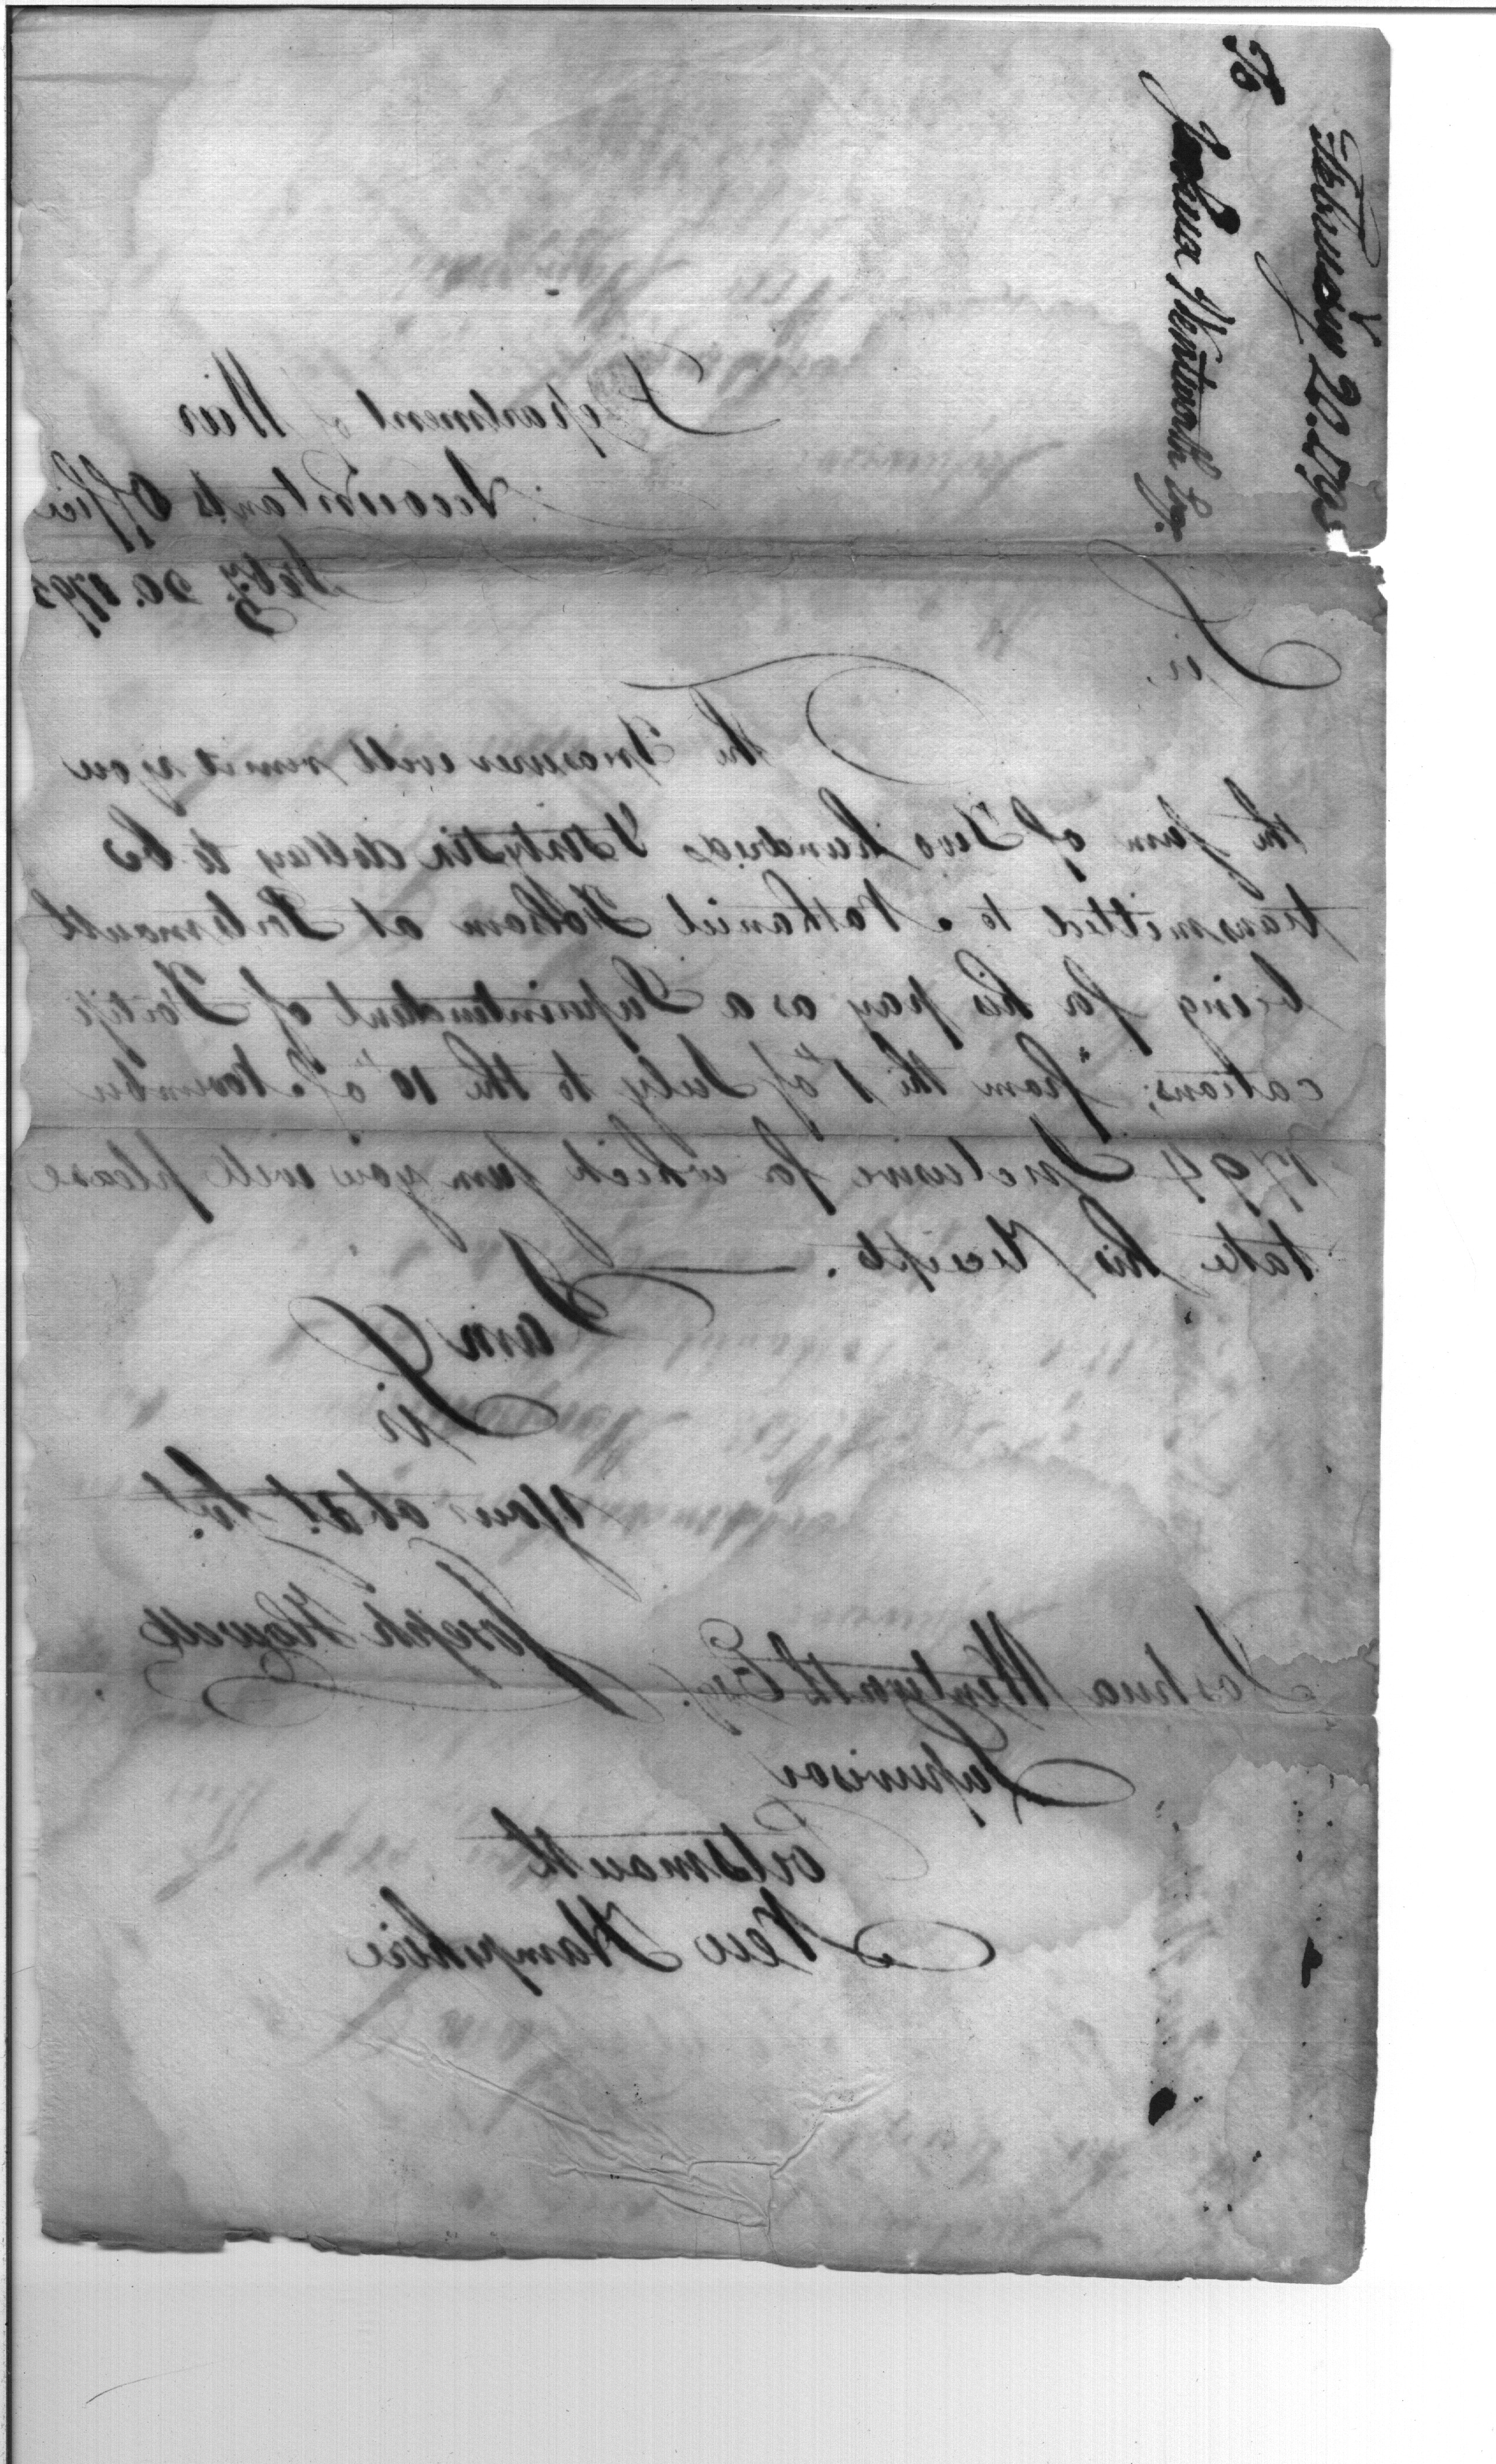 February 20. 1795
To
Joshua Wentworth Esqr.
Department of War
Accountants Office
Feby. 20. 1795
Sir,
The Treasurer will remit you
the sum of Two hundred & sixty dollars to be
transmitted to Nathaniel Folsom at Portsmouth
being for his pay as a Superintendent of Fortifi
cations; from the 1st of July to the 10th of November
1794 Inclusive for which sum you will please
take his Receipts.
I am
Sir
Your obdt. Sert.
Joseph Howell
Joshua Wentworth Esqr.
Supervisor
Portsmouth
New Hampshire